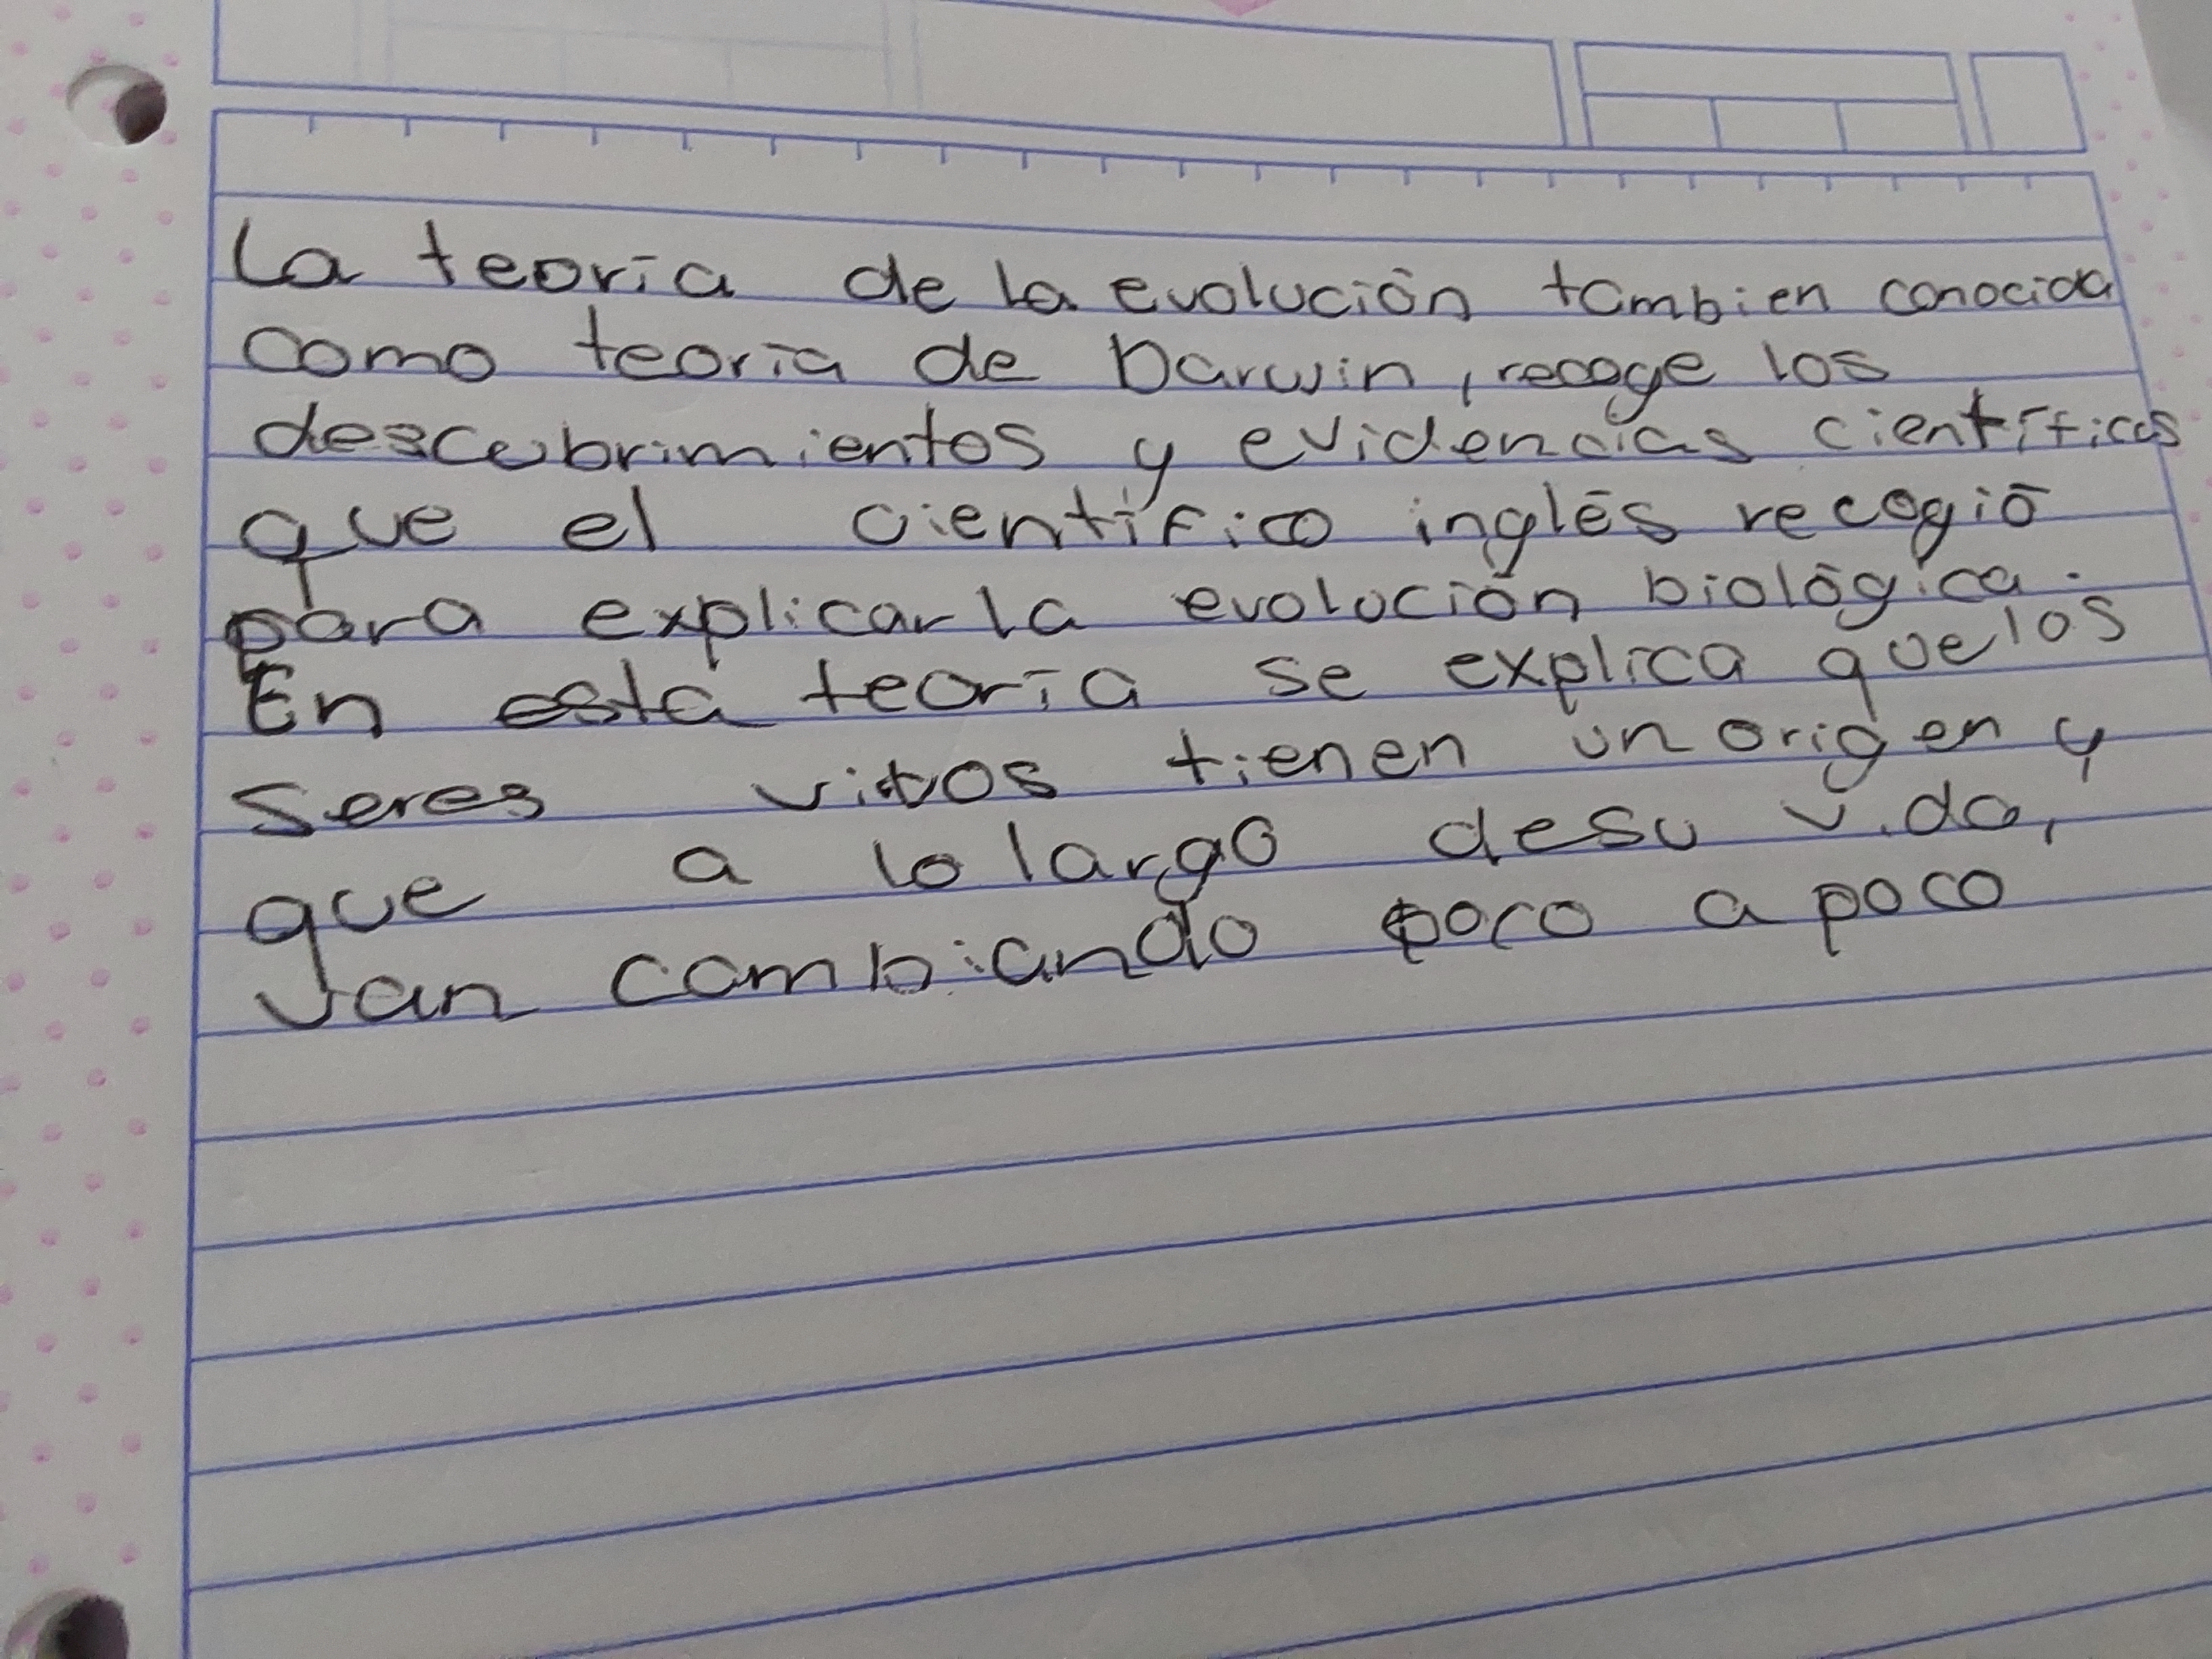 La teoría de la evolución tambien conocida
como teoría de Darwin, recoge los
descubrimientos y evidencias científicas
que el científico inglés recogió
para explicar la evolución biológica.
En esta teoría se explica que los
seres vivos tienen un origen y
que a lo largo de su vida,
van cambiando poco a poco